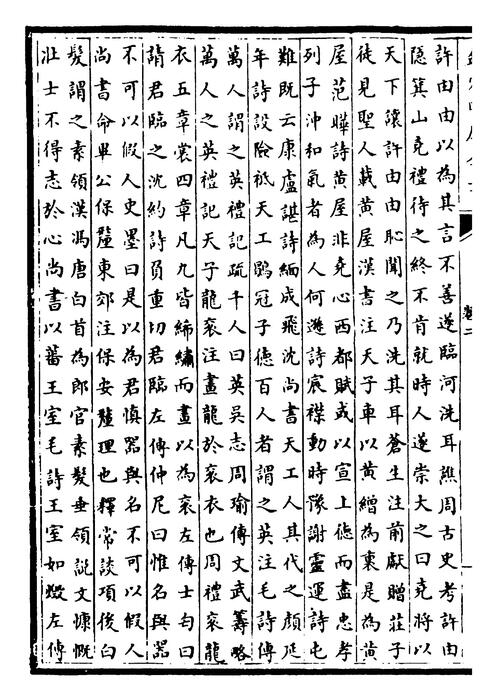 許由由以為其言不善遂臨河洗耳譙周古史考許由
隱箕山堯禮待之終不肯就時人遂崇大之曰堯將以
天下讓許由由恥聞之乃洗其耳蒼生注前獻贈莊子
徒見聖人載黃屋漢書注天子車以黃繒為裏是為黃
屋范曄詩黃屋非堯心西都賦或以宣上徳而盡忠孝
列子沖和氣者為人何遜詩宸襟動時豫謝靈運詩屯
難既云康盧諶詩緬成飛沈尚書天工人其代之顏延
年詩設險祇天工鶡冠子徳百人者謂之英注毛詩傳
萬人謂之英禮記疏千人曰英吳志周瑜傳文武籌略
萬人之英禮記天子龍袞注畫龍於袞衣也周禮袞龍
衣五章裳四章凡九皆絺繡而畫以為袞左傳士匄曰
請君臨之沈約詩負重切君臨左傳仲尼曰惟名與器
不可以假人史墨曰是以為君慎器與名不可以假人
尚書命畢公保釐東郊注保安釐理也釋常談項後白
髮謂之素領漢馮唐白首為郎官素髮垂領說文慷慨
壯士不得志於心尚書以蕃王室毛詩王室如燬左傳